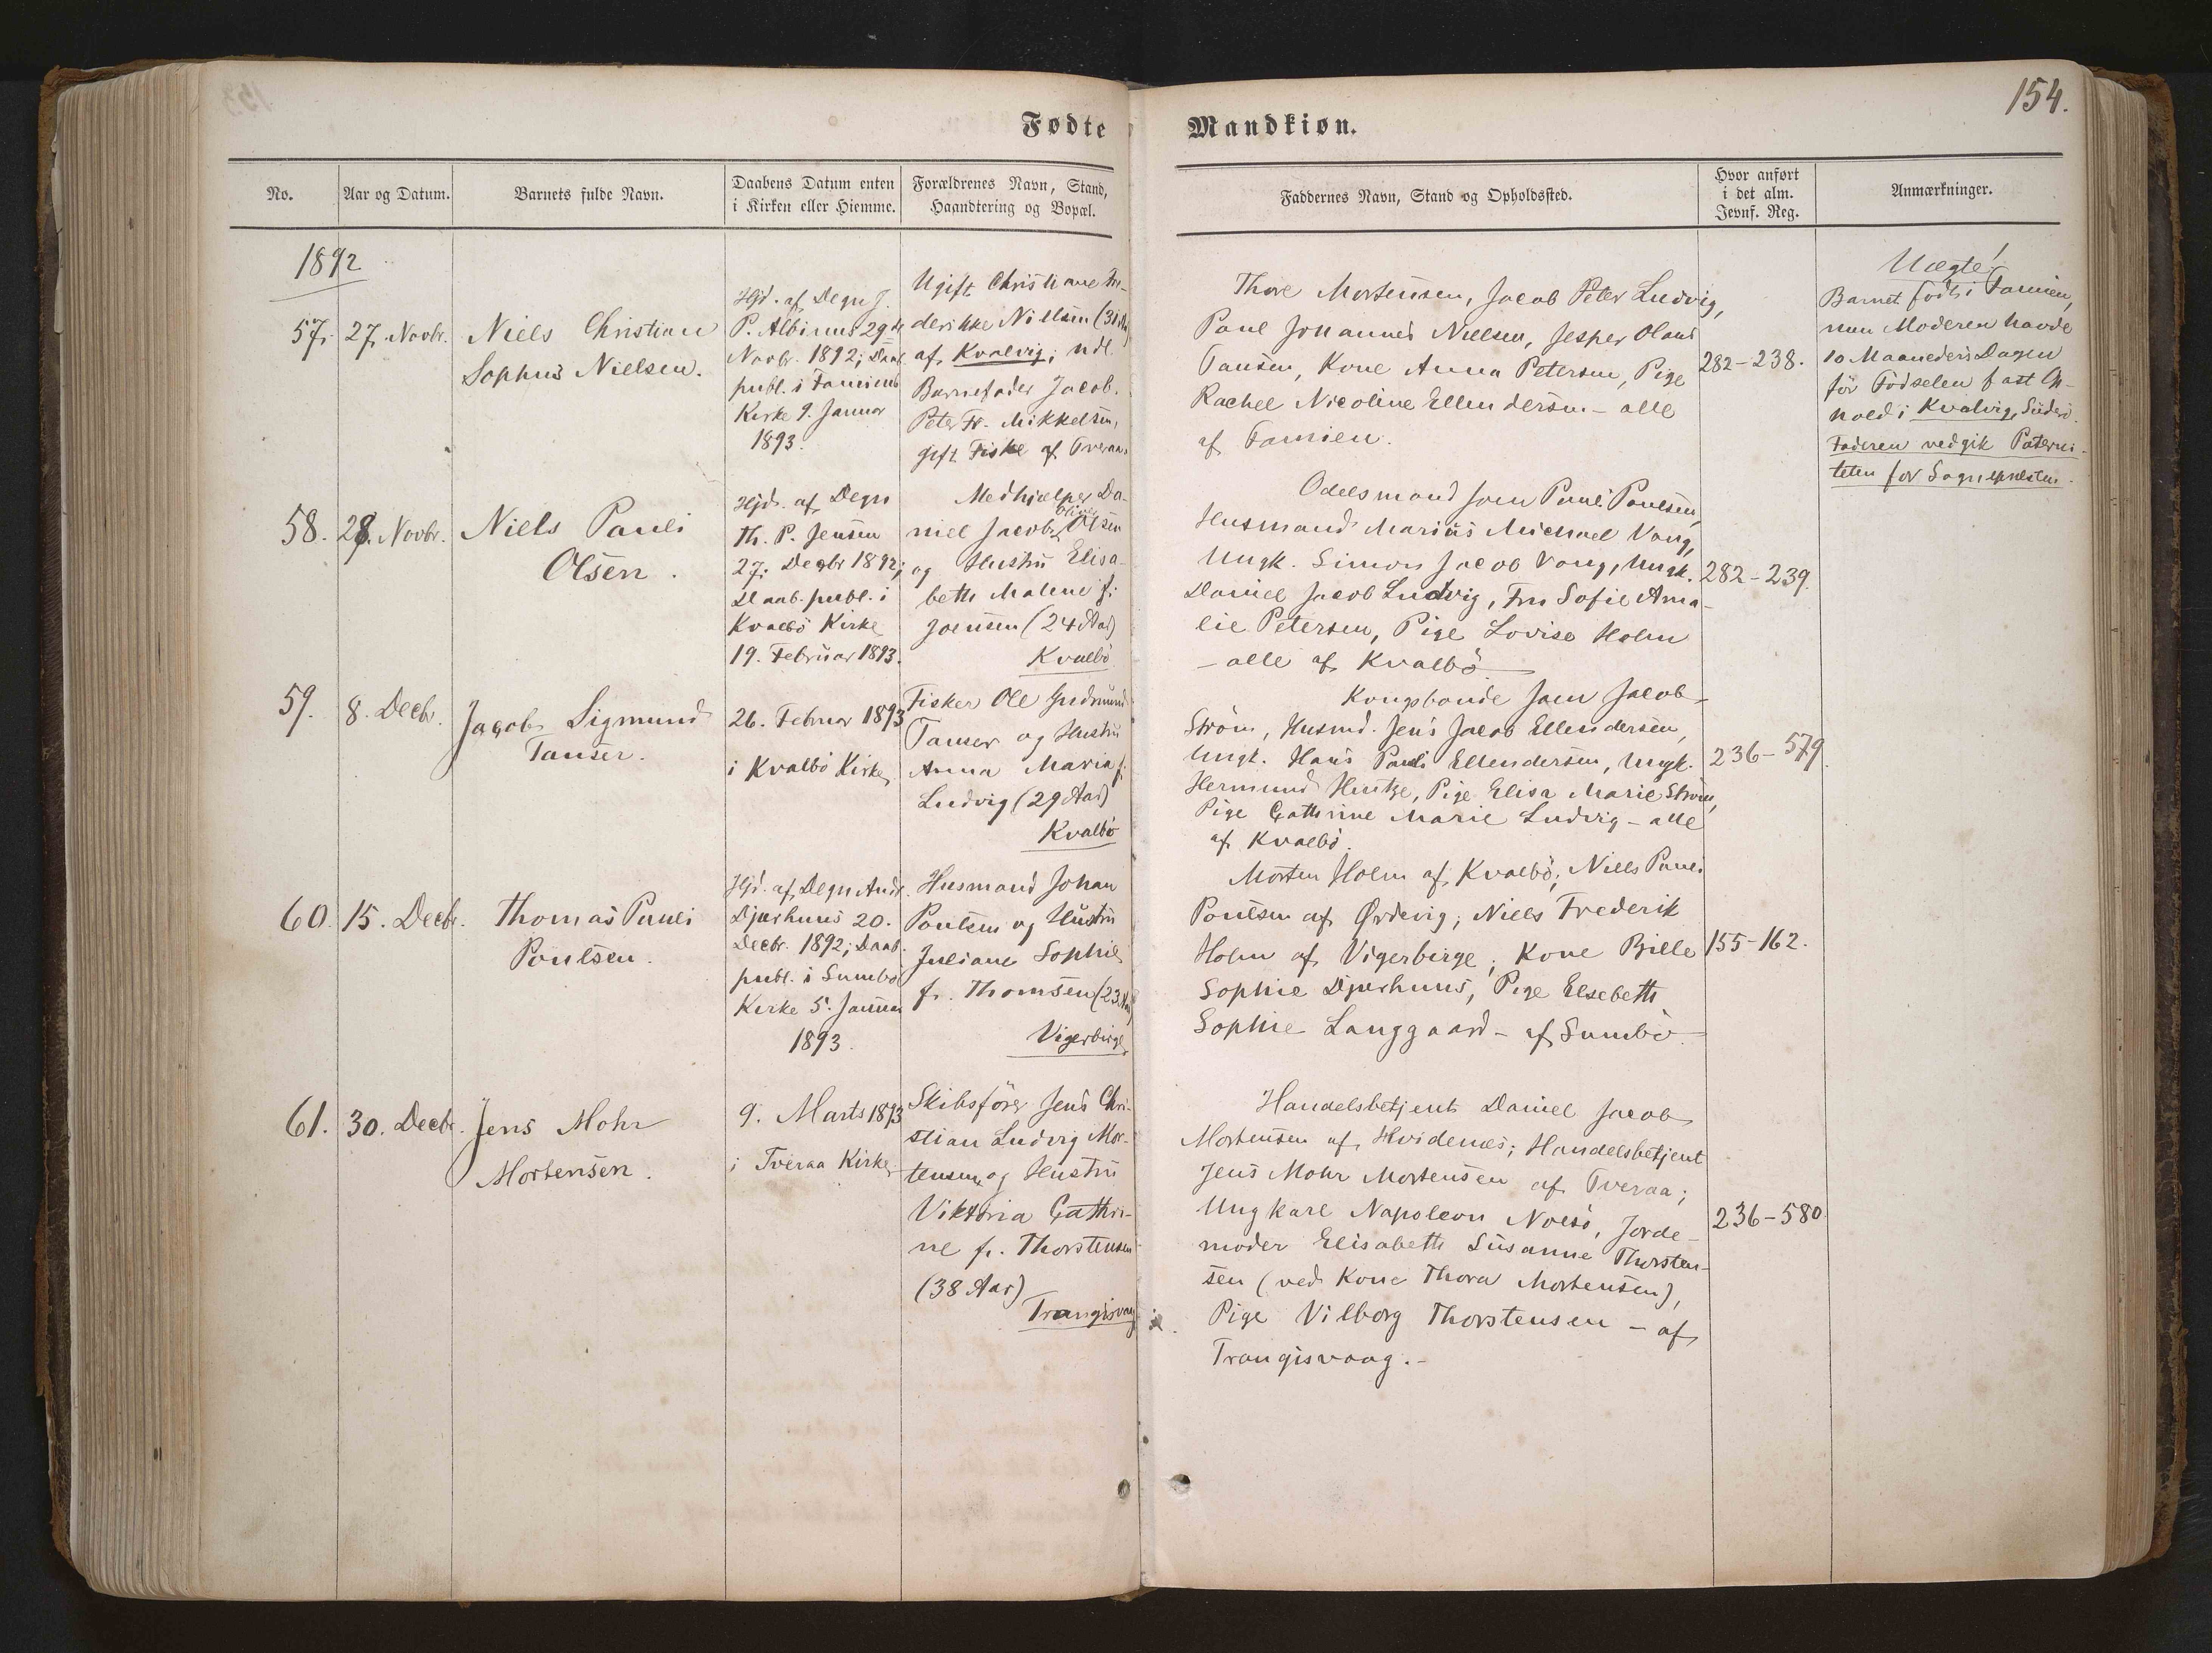 154.
Fødte Mandkiøn.
No.
Aar og Datum.
Barnets fulde Navn.
Daabens Datum enten
i Kirken eller Hiemme.
Forældrenes Navn, Stand,
Haandtering og Bopæl.
Faddernes Navn, Stand og Opholdssted.
Hvor anført
i det alm.
Jevnf. Reg.
Anmærkninger.
1892
57.
27. Novbr.
Niels Christian
Sophus Nielsen.
Hjd. af Degn J.
P. Albinus 29de
Novbr. 1892; Daab
publ. i Famiens
Kirke 9. Januar
1893.
Ugift Christiane Fre-
derikke Nielsen (31 Aar)
af Kvalvig; udl.
Barnefader Jacob
Peter Fr. Mikkelsen,
gift Fisker af Tveraa.
Thore Mortensen, Jacob Peter Ludvig,
Poul Johannes Nielsen, Jesper Olaus
Tausen, Kone Anna Petersen, Pige
Rachel Nicoline Ellendersen - alle
af Famien.
282-238.
Uægte!
Barnet födt i Famien,
men Moderen havde
10 Maaneders Dagen
för Födselen fast Op-
hold i Kvalvig, Süderö.
Faderen vedgik Paterni-
teten for Sognepræsten.
58.
28. Novbr.
Niels Pauli
Olsen.
Hjd. af Degn
Th. P. Jensen
27. Decbr 1892;
Daab. publ. i
Kvalbö Kirke
19. Februar 1893.
Medhjælper Da-
niel Jacob Oliver Olsen
og Hustru Elisa-
beth Malene f.
Joensen (24 Aar)
Kvalbö
Odelsmand Joen Pauli Poulsen,
Husmand Marius Michael Vang,
Ungk. Simon Jacob Vang, Ungk.
Daniel Jacob Ludvig, Fru Sofie Ama-
lie Petersen, Pige Lovise Holm
- alle af Kvalbö
282-239.
59.
8. Decbr.
Jacob Sigmund
Tausen.
26. Februar 1893
i Kvalbö Kirke
Fisker Ole Gudmund
Tausen og Hustru
Anna Maria f.
Ludvig (29 Aar)
Kvalbö
Kongsbonde Joen Jacob
Ström, Husmd. Jens Jacob Ellendersen,
Ungk. Hans Pauli Ellendersen, Ungk.
Hermund Hentze, Pige Elisa Marie Ström,
Pige Cathrine Marie Ludvig - alle
af Kvalbö.
236-579.
60.
15. Decbr.
Thomas Pauli
Poulsen.
Hjd. af Degn Andr.
Djurhuus 20.
Decbr. 1892; Daab.
publ. i Sumbö
Kirke 5. Januar
1893.
Husmand Johan
Poulsen og Hustru
Juliane Sophie
f. Thomsen (23 Aar)
Vigerbirge
Morten Holm af Kvalbö; Niels Pauli
Poulsen af Ørdevig; Niels Frederik
Holm af Vigerbirge; Kone Bille
Sophie Djurhuus, Pige Elsebeth
Sophie Langgaard - af Sumbö.
155-162.
61.
30. Decbr.
Jens Mohr
Mortensen.
9. Marts 1893
i Tveraa Kirke
Skibsförer Jens Chri-
stian Ludvig Mor-
tensen og Hustru
Viktoria Cathri-
ne f. Thorstensen
(38 Aar)
Trangisvaag
Handelsbetjent Daniel Jacob
Mortensen af Hvidenæs; Handelsbetjent
Jens Mohr Mortensen af Tveraa;
Ungkarl Napoleon Nolsö, Jorde-
moder Elisabeth Susanne Thorsten-
sen (ved Kone Thora Mortensen),
Pige Vilborg Thorstensen - af
Trangisvaag.-
236-580.